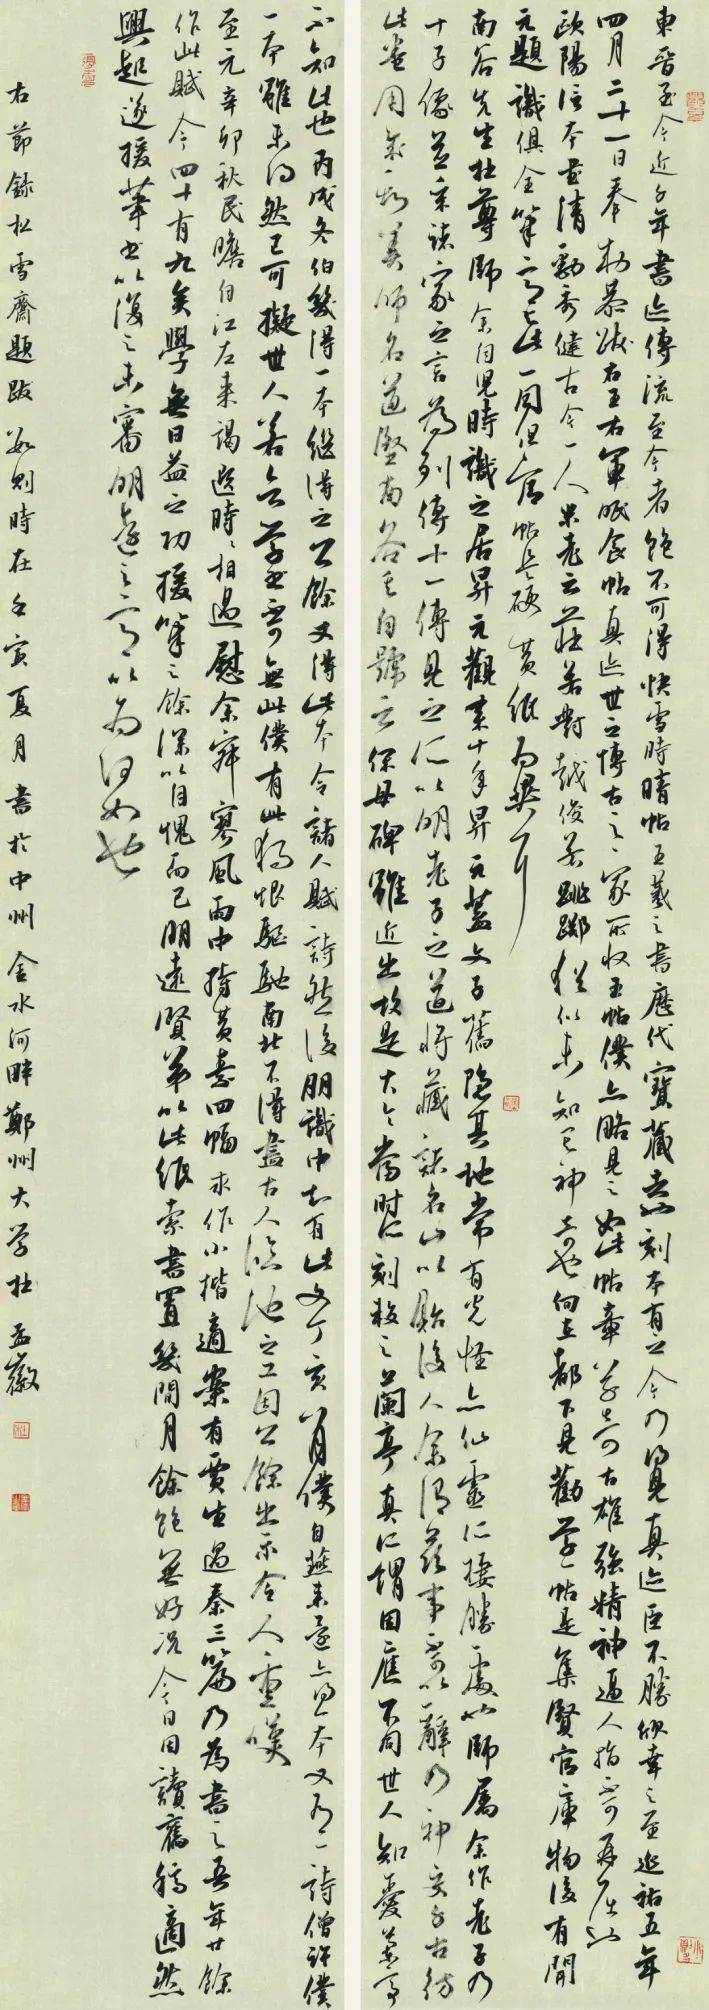 東晋至今近千年書迹傳流至今者絶不可得快雪時晴帖王羲之書歷代寶藏者也刻本有之今乃得見真迹臣不勝欣幸之至延祐五年
四月二十一日奉勑恭跋右王右軍眠食帖真迹世之博古之家所收王帖僕亦略見之如此帖章草奇古雄强精神逼人指不可再屈
歐陽信本書清勁秀健古今一人米老云莊若對越俊若跳擲猶似未知其神奇也向在都下見勸學一帖是集賢官庫物後有開
元題識俱全筆意與此一同但官帖是硬黄紙爲異耳
南谷先生杜尊師余自兒時識之居昇元觀來十年昇元蓋文子舊隱其地常有光怪亦仙靈所接勝處也師屬余作老子乃
十子像并采諸家之言爲列傳十一傳見之所以明老子之道將藏諸名山以貽後人余謂茲事不可以辭乃神交千古彷
此卷用成形異師名道堅南谷其自號云保母碑雖近出故是大令當時所刻較之蘭亭真所謂因應不同世人知愛蘭亭
不知此也丙戌冬伯幾得一本繼得之公餘又得此本令諸人賦詩然後朋識中知有此文丁亥八月僕自燕來還亦得一本又有一詩僧許僕
一本雖未得然已可擬世人若欲學書不可無此僕有此獨恨驅馳南北不得盡古人臨池之工因公餘出示令人重嘆
至元辛卯秋民瞻自江左來謁選時時相過慰余寂寥風雨中持黄素四幅求作小楷適案有賈生過秦三篇乃爲書之吾年廿餘
作此賦今四十有九矣學無日益之功援筆之餘深以自愧而已明遠賢弟以此紙索書置幾間月餘絶無好况今日因讀舊稿適然
興起遂援筆書以復之未審明遠之意以爲何如也
右節錄松雪齋題跋數則時在壬寅夏月書於中州金水河畔鄭州大学杜孟徽